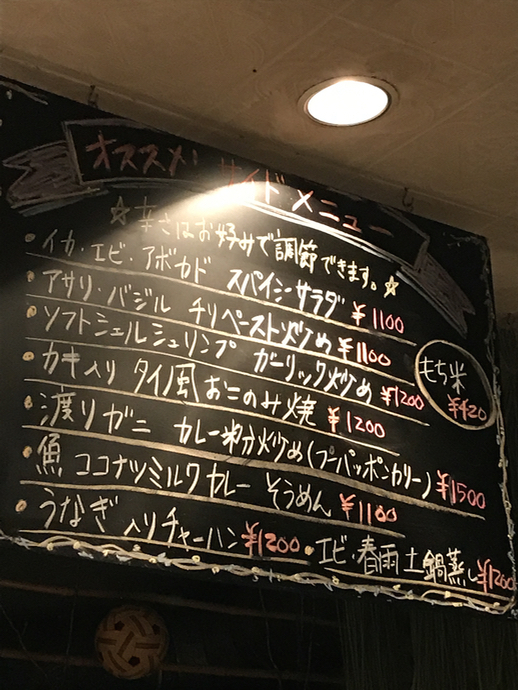 オススメ サイドメニュー
☆辛さはお好みで調節できます。☆
・イカ・エビ・アボカド スパイシーサラダ ¥1100
・アサリ・バジル チリペースト炒め ¥1100
・ソフトシェルシュリンプ ガーリック炒め ¥1200
・カキ入り タイ風おこのみ焼 ¥1200
もち米
¥420
・渡りガニ カレー粉炒め(プーパッポンカリー) ¥1500
・魚 ココナツミルクカレー そうめん ¥1100
・うなぎ入りチャーハン ¥1200 ・エビ・春雨土鍋蒸し ¥1200